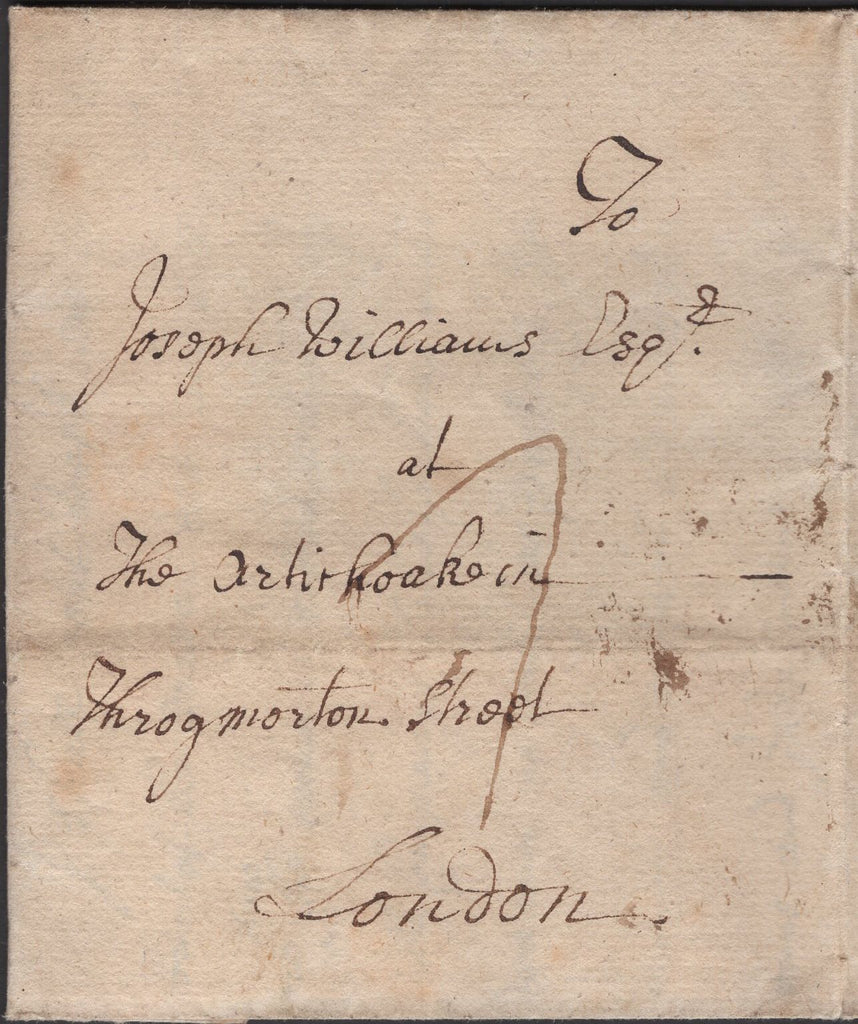 To
Joseph Williams Esqr.
at
7
The Artichoake in —
Throgmorton Street
London.